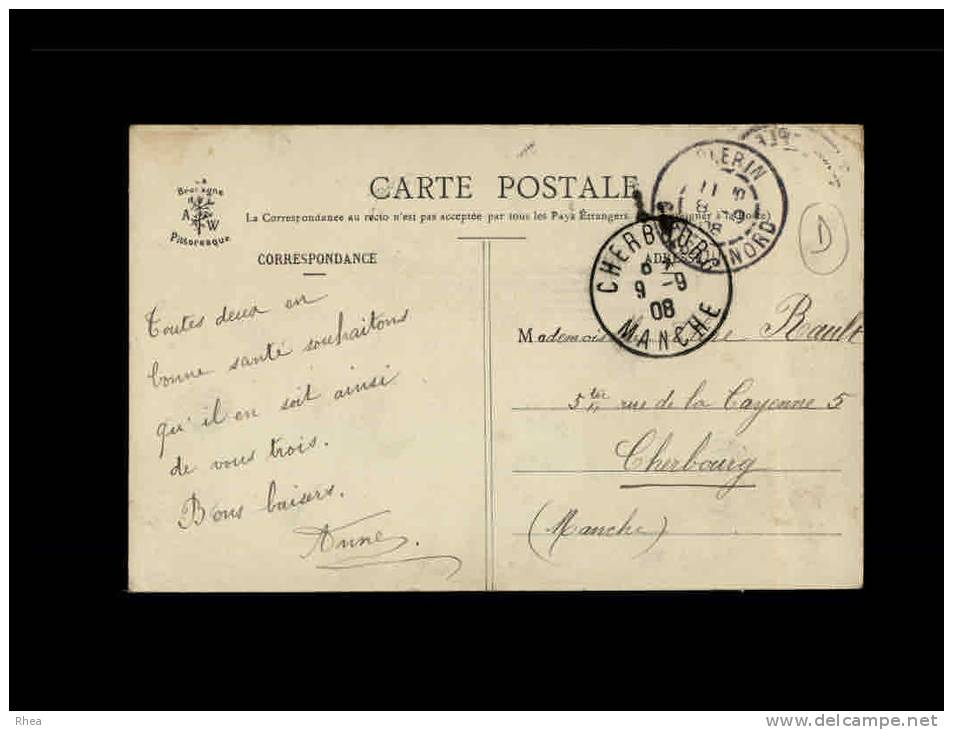 CARTE POSTALE
Bretagne
A W
Pittoresque
La Correspondance au recto n'est pas acceptée par tous les Pays Étrangers.
CORRESPONDANCE
Toutes deux en
bonne santé souhaitons
qu'il en soit ainsi
de vous trois.
Bons baisers.
Anne.
PLERIN
11
8 -9
08
NORD
D
CHERBOURG
9 -9
08
MANCHE
ADRESSE
Rault
5ter rue de la Cayenne 5
Cherbourg
(Manche)
Rhea
www.delcampe.net